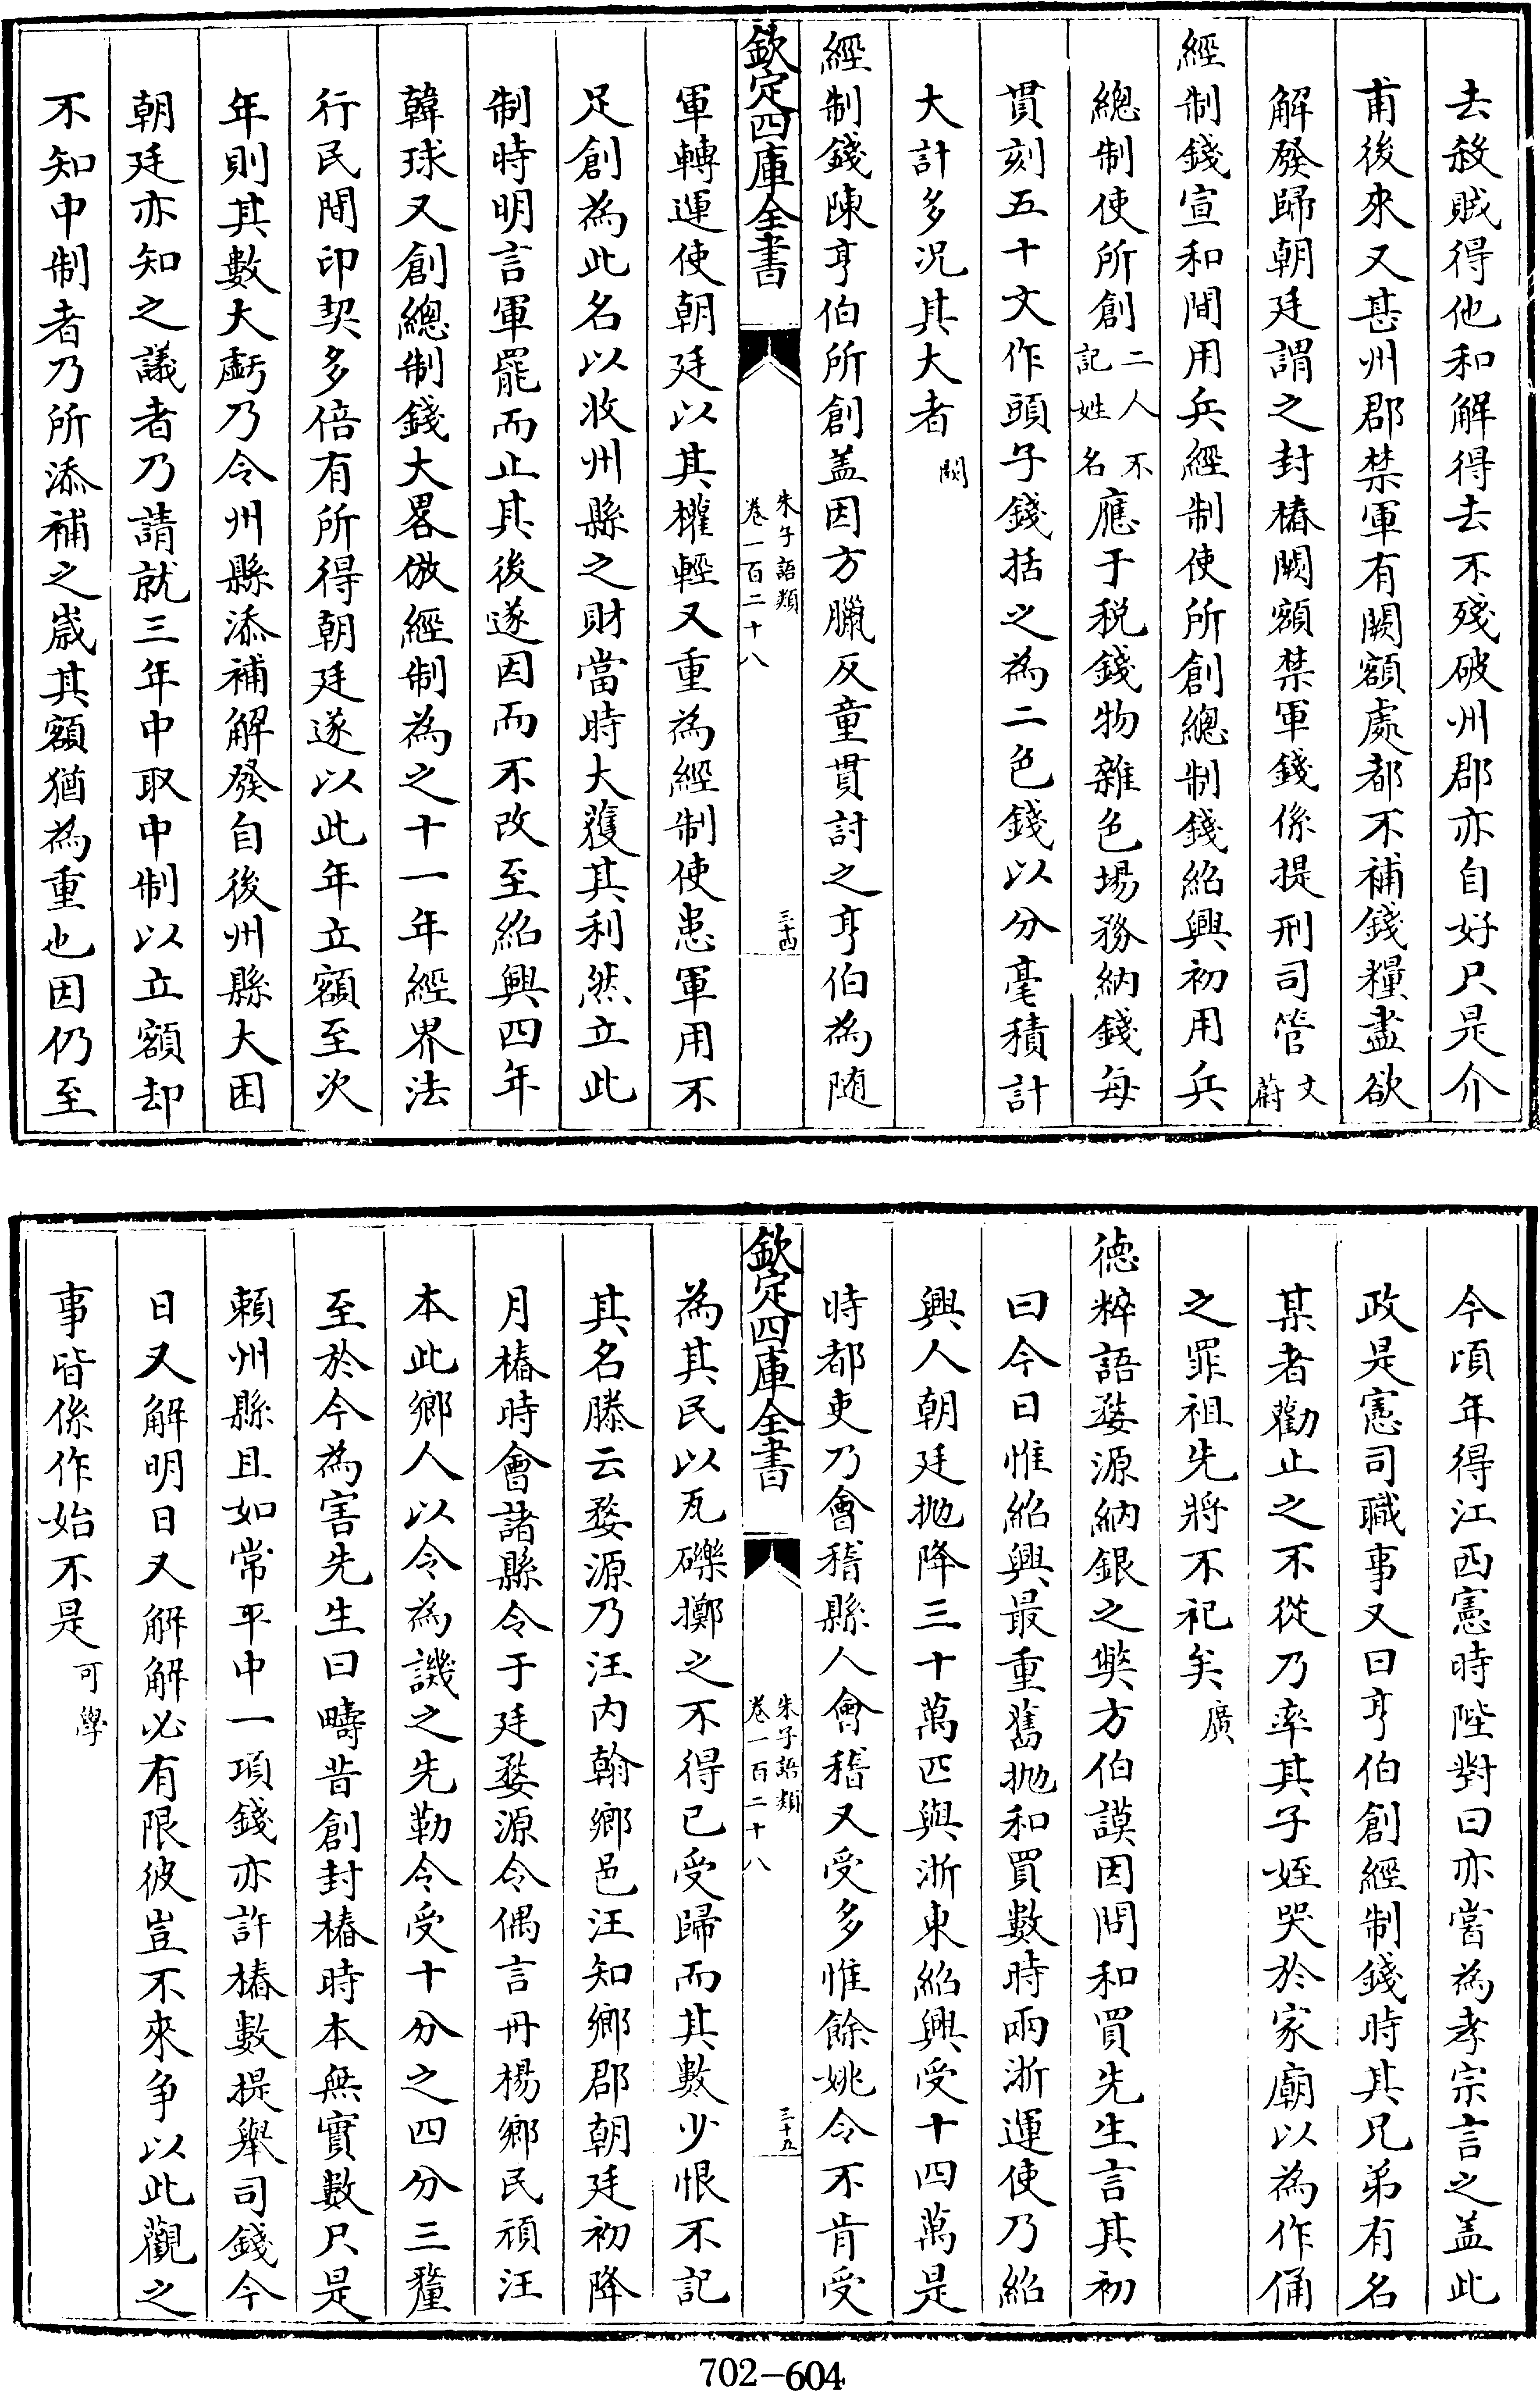 去殺賊得他和解得去不殘破州郡亦自好只是介
甫後來又甚州郡禁軍有闕額處都不補錢糧盡欲
解發歸朝廷謂之封樁闕額禁軍錢係提刑司管文蔚
經制錢宣和間用兵經制使所創總制錢紹興初用兵
總制使所創二人不記姓名應于税錢物雜色場務納錢每
貫刻五十文作頭子錢括之為二色錢以分毫積計
大計多况其大者闕
經制錢陳亨伯所創盖因方臘反童貫討之亨伯為随
欽定四庫全書
朱子語類
卷一百二十八
三十四
軍轉運使朝廷以其權輕又重為經制使患軍用不
足創為此名以收州縣之財當時大獲其利然立此
制時明言軍罷而止其後遂因而不改至紹興四年
韓球又創總制錢大畧倣經制為之十一年經界法
行民間印契多倍有所得朝廷遂以此年立額至次
年則其數大虧乃令州縣添補解發自後州縣大困
朝廷亦知之議者乃請就三年中取中制以立額却
不知中制者乃所添補之嵗其額猶為重也因仍至
今頃年得江西憲時陛對曰亦嘗為孝宗言之盖此
政是憲司職事又曰亨伯創經制錢時其兄弟有名
某者勸止之不從乃率其子姪哭於家廟以為作俑
之罪祖先將不祀矣廣
德粹語婺源納銀之獘方伯謨因問和買先生言其初
曰今日惟紹興最重舊抛和買數時兩浙運使乃紹
興人朝廷抛降三十萬匹與浙東紹興受十四萬是
時都吏乃會稽縣人會稽又受多惟餘姚令不肯受
欽定四庫全書
朱子語類
卷一百二十八
三十五
為其民以瓦礫擲之不得已受歸而其數少恨不記
其名滕云婺源乃汪内翰鄉邑汪知鄉郡朝廷初降
月樁時會諸縣令于廷婺源令偶言丹楊鄉民頑汪
本此鄉人以令為譏之先勒令受十分之四分三釐
至於今為害先生曰疇昔創封樁時本無實數只是
賴州縣且如常平中一項錢亦許樁數提舉司錢今
日又解明日又解解必有限彼豈不來争以此觀之
事皆係作始不是可學
702-604